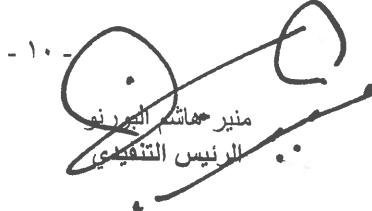 - ١٠ -
منير هاشم البورنو
الرئيس التنفيذي